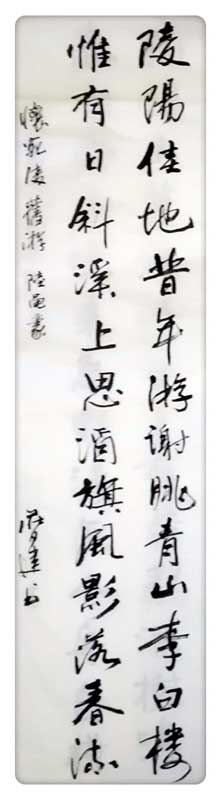 陵陽佳地昔年游謝朓青山李白樓
惟有日斜溪上思酒旗風影落春流
懷宛陵舊游 陸龜蒙